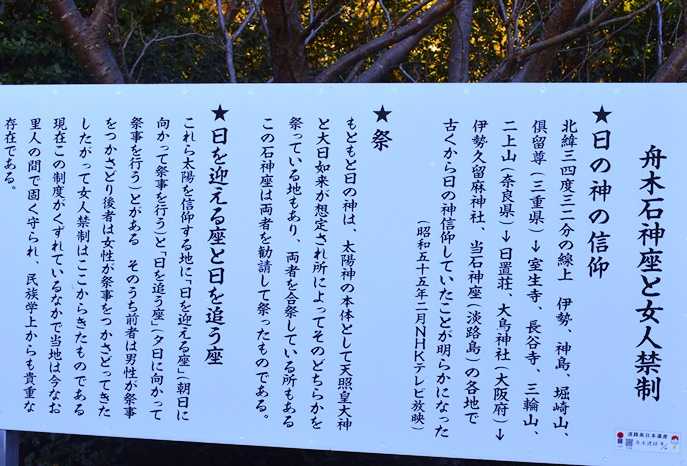 舟木石神座と女人禁制
★日の神の信仰
北緯三四度三二分の線上 伊勢、神島、堀崎山、
倶留尊(三重県)→室生寺、長谷寺、三輪山、
二上山(奈良県)→日置荘、大鳥神社(大阪府)→
伊勢久留麻神社、当石神座(淡路島)の各地で
古くから日の神信仰していたことが明らかになった
(昭和五十五年二月NHKテレビ放映)
★祭
もともと日の神は、太陽神の本体として天照皇大神
と大日如来が想定され所によってそのどちらかを
祭っている地もあり、両者を合祭している所もある
この石神座は両者を勧請して祭ったものである。
★日を迎える座と日を追う座
これら太陽を信仰する地に「日を迎える座」(朝日に
向かって祭事を行う)と「日を追う座」(夕日に向かって
祭事を行う)とがある そのうち前者は男性が祭事
をつかさどり後者は女性が祭事をつかさどってきた
したがって女人禁制はここからきたものである
現在この制度がくずれているなかで当地は今なお
里人の間で固く守られ、民族学上からも貴重な
存在である。
淡路島日本遺産